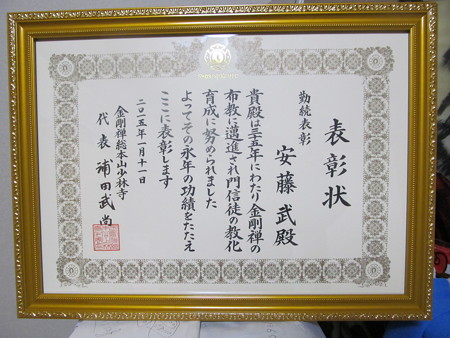 表彰状
勤続表彰
安藤武殿
貴殿は三五年にわたり金剛禅の
布教に邁進され門信徒の教化
育成に努められました
よってその永年の功績をたたえ
ここに表彰します
二〇一五年一月十一日
金剛禅総本山少林寺
代表 浦田武尚